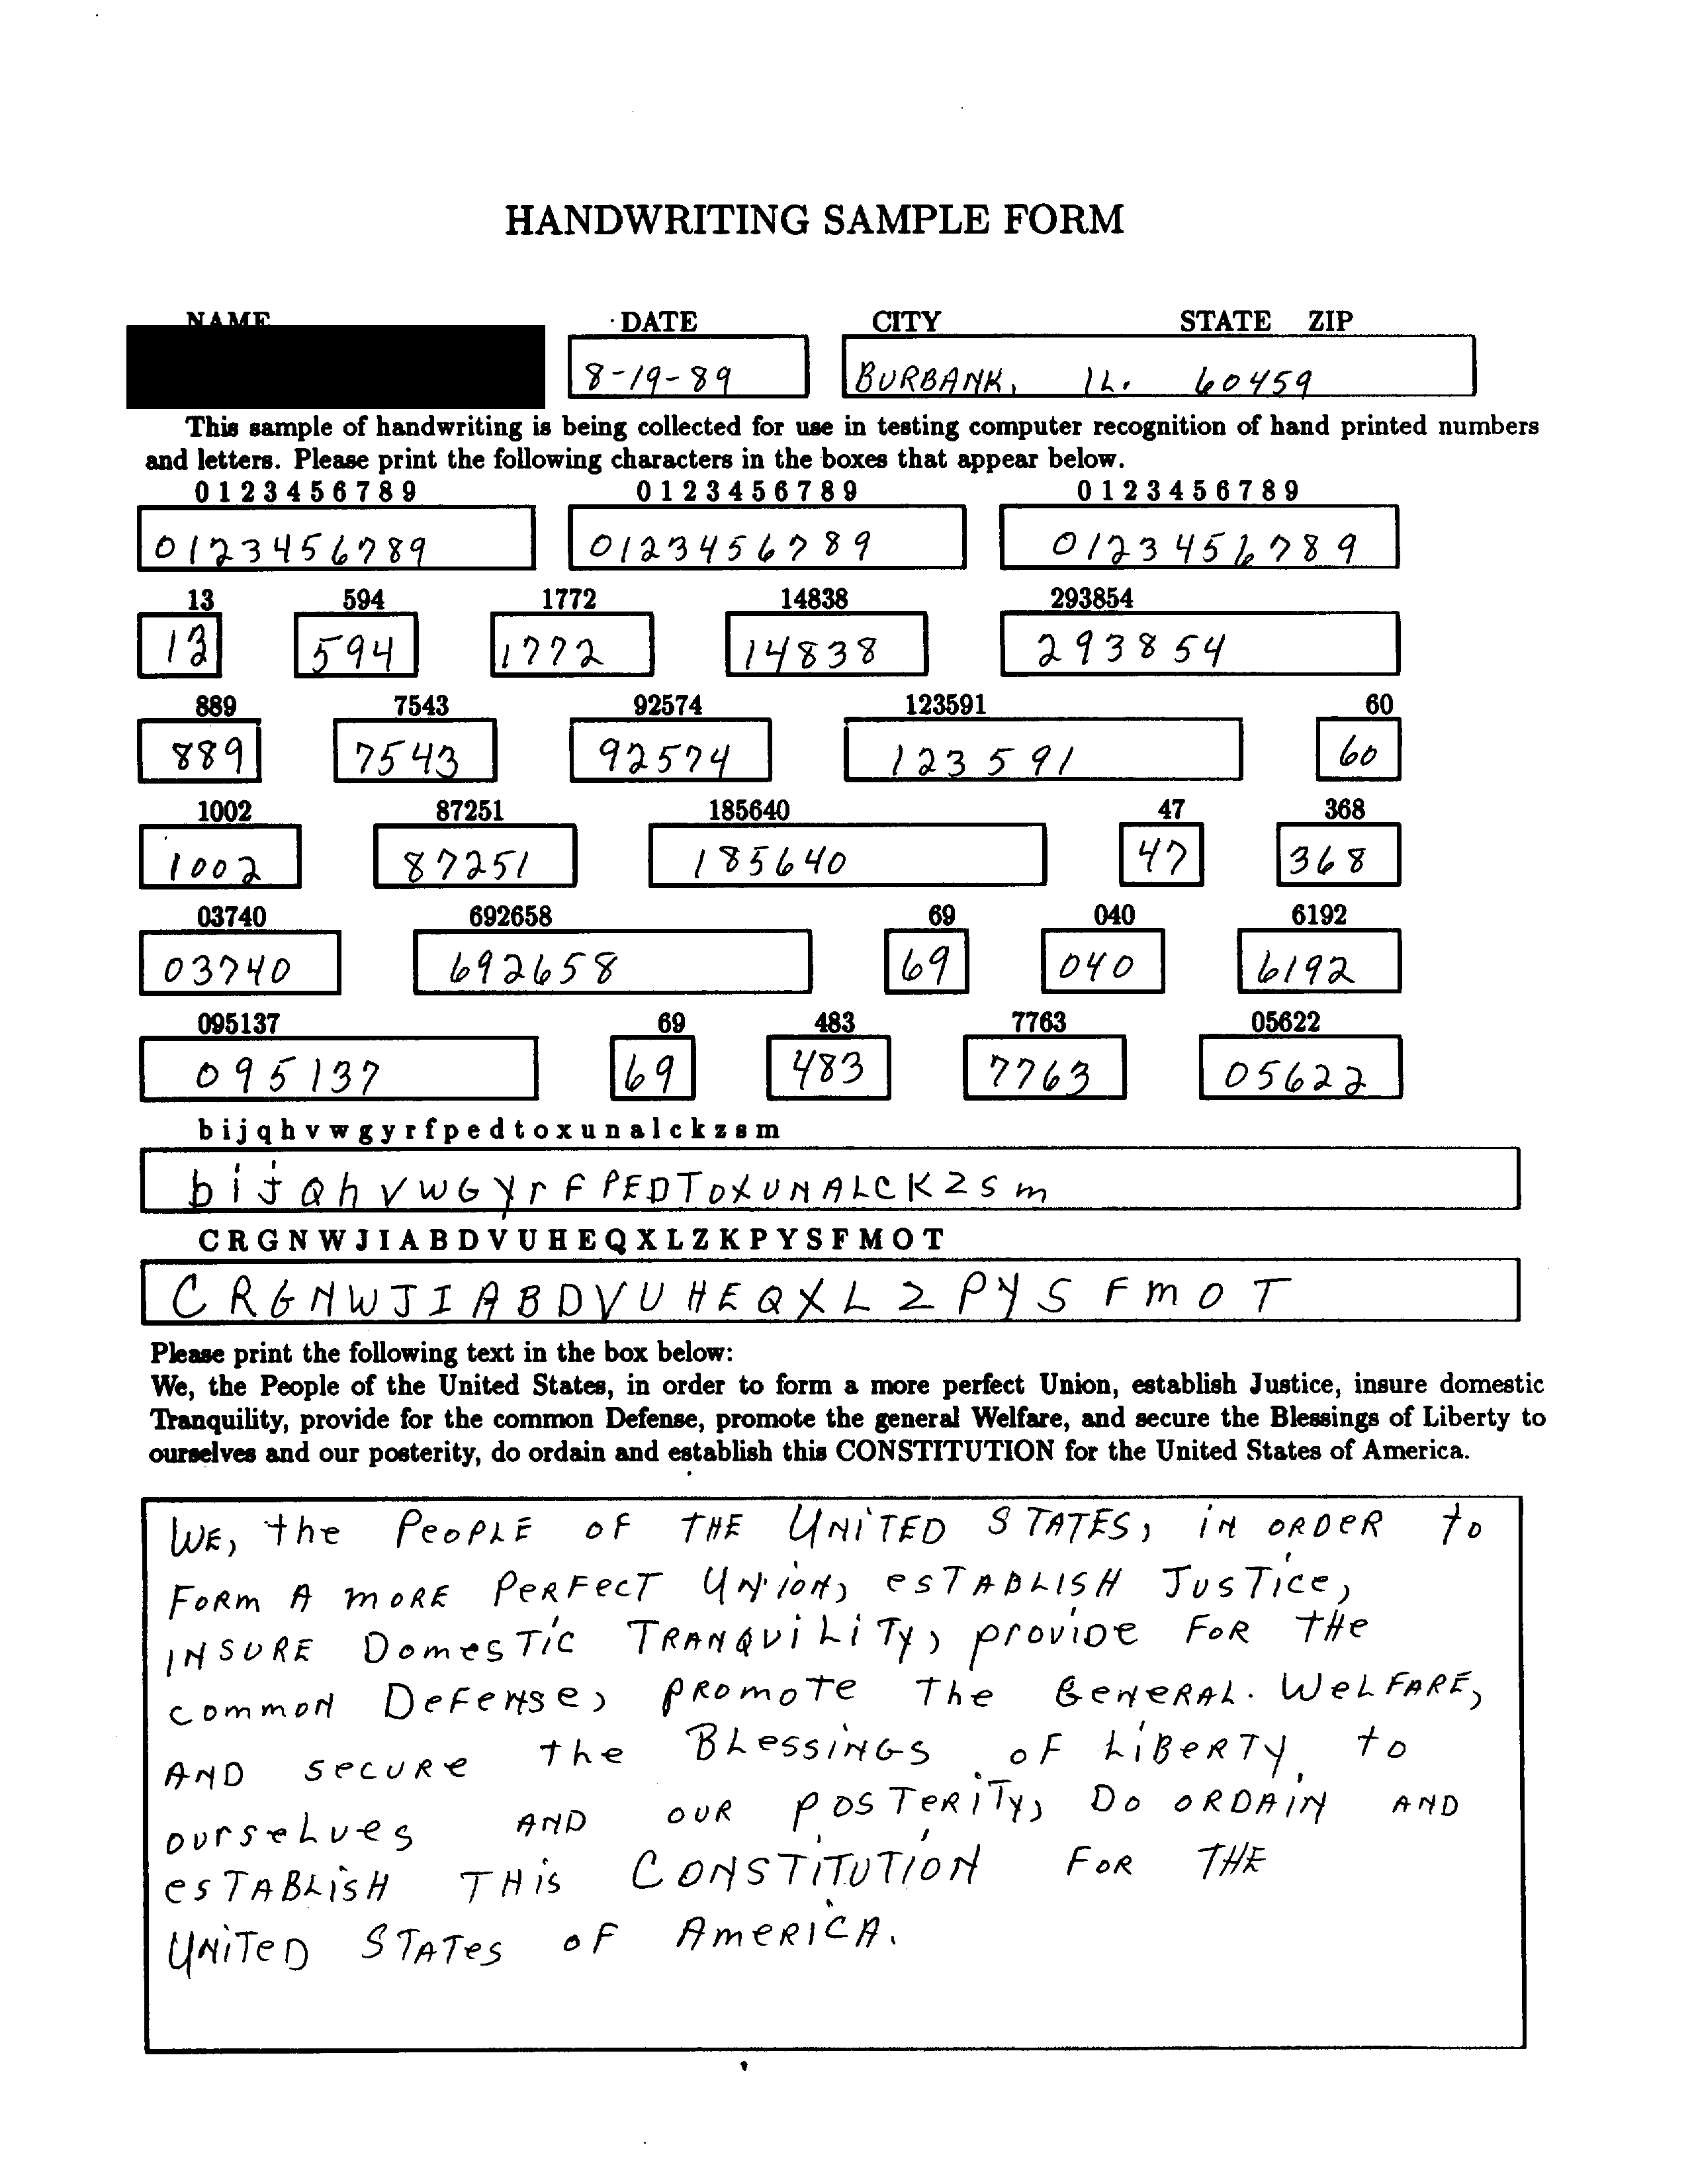 HANDWRITING SAMPLE FORM
NAME DATE CITY STATE ZIP
8-19-89 BURBANK, IL. 60459
This sample of handwriting is being collected for use in testing computer recognition of hand printed numbers
and letters. Please print the following characters in the boxes that appear below.
0 1 2 3 4 5 6 7 8 9 0 1 2 3 4 5 6 7 8 9 0 1 2 3 4 5 6 7 8 9
0123456789 0123456789 0123456789
13 594 1772 14838 293854
13 594 1772 14838 293854
889 7543 92574 123591 60
889 7543 92574 123591 60
1002 87251 185640 47 368
1002 87251 185640 47 368
03740 692658 69 040 6192
03740 692658 69 040 6192
095137 69 483 7763 05622
095137 69 483 7763 05622
b i j q h v w g y r f p e d t o x u n a l c k z s m
b i j Q h V W G Y r F P E D T O X U N A L C K Z S m
C R G N W J I A B D V U H E Q X L Z K P Y S F M O T
C R G N W J I A B D V U H E Q X L Z P Y S F m O T
Please print the following text in the box below:
We, the People of the United States, in order to form a more perfect Union, establish Justice, insure domestic
Tranquility, provide for the common Defense, promote the general Welfare, and secure the Blessings of Liberty to
ourselves and our posterity, do ordain and establish this CONSTITUTION for the United States of America.
WE, the PeoPLE oF THE UNiTED STATES, iN ORDeR to
FoRm A moRE PeRFecT UNioN, esTABLISH JusTice,
INSURE DomesTic TRANQuiLiTy, proviDe FoR THe
common DeFeNse, PRomoTe The GeNeRAL. WeLFARE,
AND secuRe the BLessiNGS oF LiBeRTY to
ourseLves AND ouR posTeRiTy, Do oRDAiN AND
esTABLiSH THis CONSTiTUTiON FoR THE
UNiTeD STATes oF AmeRiCA.